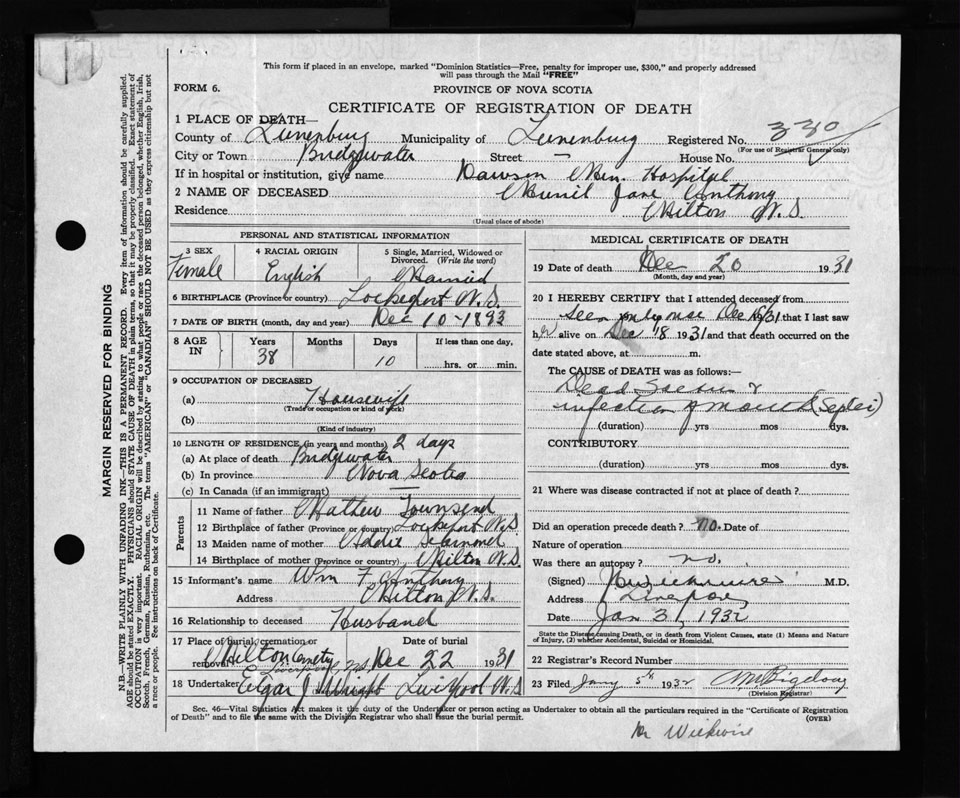 This form if placed in an envelope, marked "Dominion Statistics—Free, penalty for improper use, $300," and properly addressed
will pass through the Mail "FREE"
FORM 6.
PROVINCE OF NOVA SCOTIA
CERTIFICATE OF REGISTRATION OF DEATH
1 PLACE OF DEATH—
County of Lunenburg Municipality of Lunenburg Registered No. 330
(For use of Registrar General only)
City or Town Bridgewater Street — House No.
If in hospital or institution, give name Dawson Mem. Hospital
2 NAME OF DECEASED Jane Anthony
Residence Milton N.S.
(Usual place of abode)
PERSONAL AND STATISTICAL INFORMATION
3 SEX Female
4 RACIAL ORIGIN English
5 Single, Married, Widowed or Divorced. (Write the word) Married
6 BIRTHPLACE (Province or country) Lockeport N.S.
7 DATE OF BIRTH (month, day and year) Dec 10-1893
8 AGE IN Years 38 Months Days 10 If less than one day, hrs. or min.
9 OCCUPATION OF DECEASED
(a) Housewife
(Trade or occupation or kind of work)
(b)
(Kind of industry)
10 LENGTH OF RESIDENCE (in years and months) 2 days
(a) At place of death Bridgewater
(b) In province Nova Scotia
(c) In Canada (if an immigrant) —
Parents
11 Name of father Mathew Townsend
12 Birthplace of father (Province or country) Lockeport N.S
13 Maiden name of mother Addie
14 Birthplace of mother (Province or country) Milton N.S.
15 Informant's name Wm F. Anthony
Address Milton N.S.
16 Relationship to deceased Husband
17 Place of burial, cremation or removal Milton Cemetry Liverpool N.S. Date of burial Dec 22 1931
18 Undertaker Edgar J Liverpool N.S
MEDICAL CERTIFICATE OF DEATH
19 Date of death Dec 20 1931
(Month, day and year)
20 I HEREBY CERTIFY that I attended deceased from
seen only once Dec 18/31 that I last saw
her alive on Dec 18 1931 and that death occurred on the
date stated above, at m.
The CAUSE of DEATH was as follows:—
infection of mouth (Septic)
(duration) yrs mos dys.
CONTRIBUTORY
(duration) yrs mos dys.
21 Where was disease contracted if not at place of death?
Did an operation precede death? no. Date of
Nature of operation
Was there an autopsy? no.
(Signed) M.D.
Address Liverpool
Date Jan 3, 1932
State the Disease causing Death, or in death from Violent Causes, state (1) Means and Nature of Injury, (2) whether Accidental, Suicidal or Homicidal.
22 Registrar's Record Number
23 Filed Jany 5th 1932
(Division Registrar)
Sec. 46—Vital Statistics Act makes it the duty of the Undertaker or person acting as Undertaker to obtain all the particulars required in the "Certificate of Registration
of Death" and to file the same with the Division Registrar who shall issue the burial permit.
(OVER)
Dr Wickwire
MARGIN RESERVED FOR BINDING
N.B.—WRITE PLAINLY WITH UNFADING INK—THIS IS A PERMANENT RECORD. Every item of information should be carefully supplied.
AGE should be stated EXACTLY. PHYSICIANS should STATE CAUSE OF DEATH in plain terms, so that it may be properly classified. Exact statement of
OCCUPATION is very important. RACIAL ORIGIN will be described by stating to what people or race the deceased person belonged, whether English, Irish,
Scotch, French, German, Russian, Ruthenian, etc. The terms "AMERICAN" or "CANADIAN" SHOULD NOT BE USED as they express citizenship but not
a race or people. See instructions on back of Certificate.